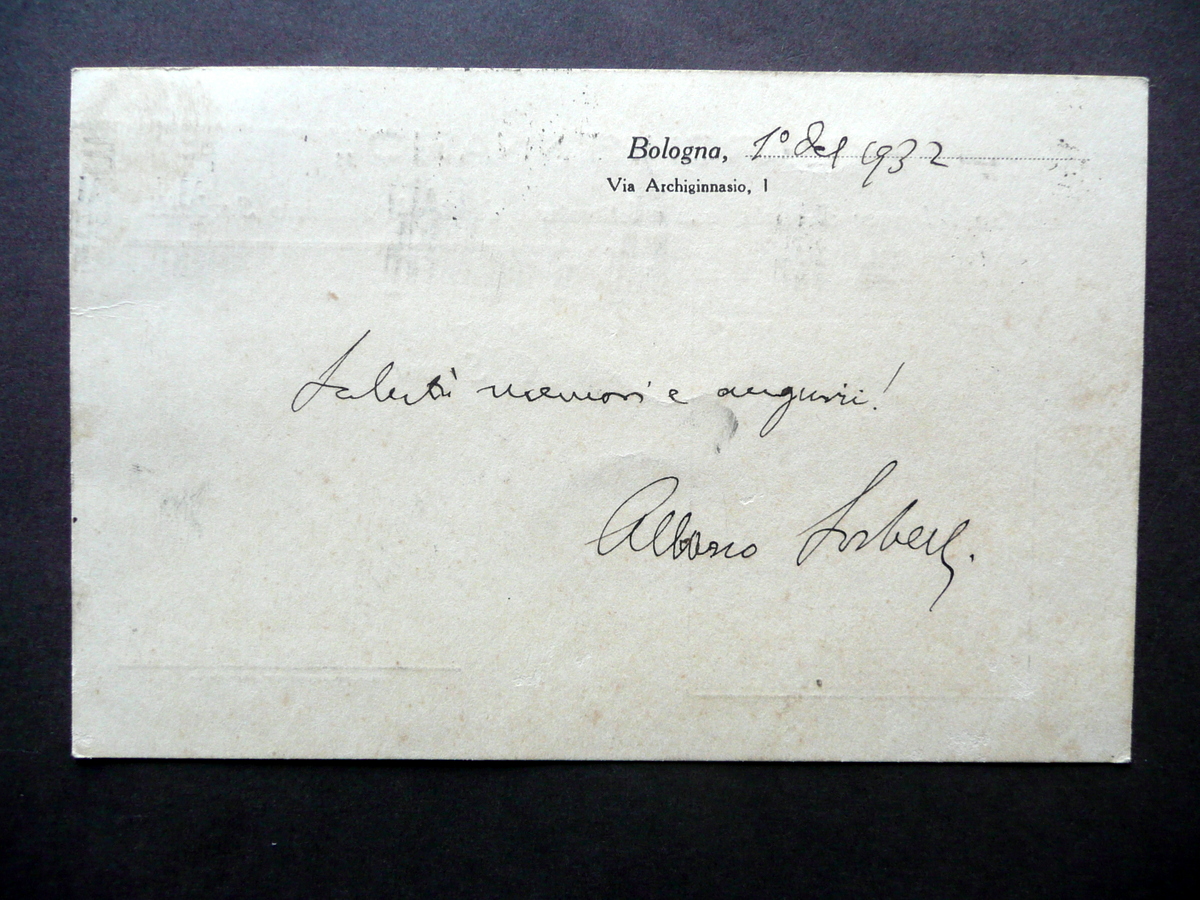 Bologna, 1° del 1932
Via Archiginnasio, 1
Saluti memori e auguri!
Albano Sorbelli.